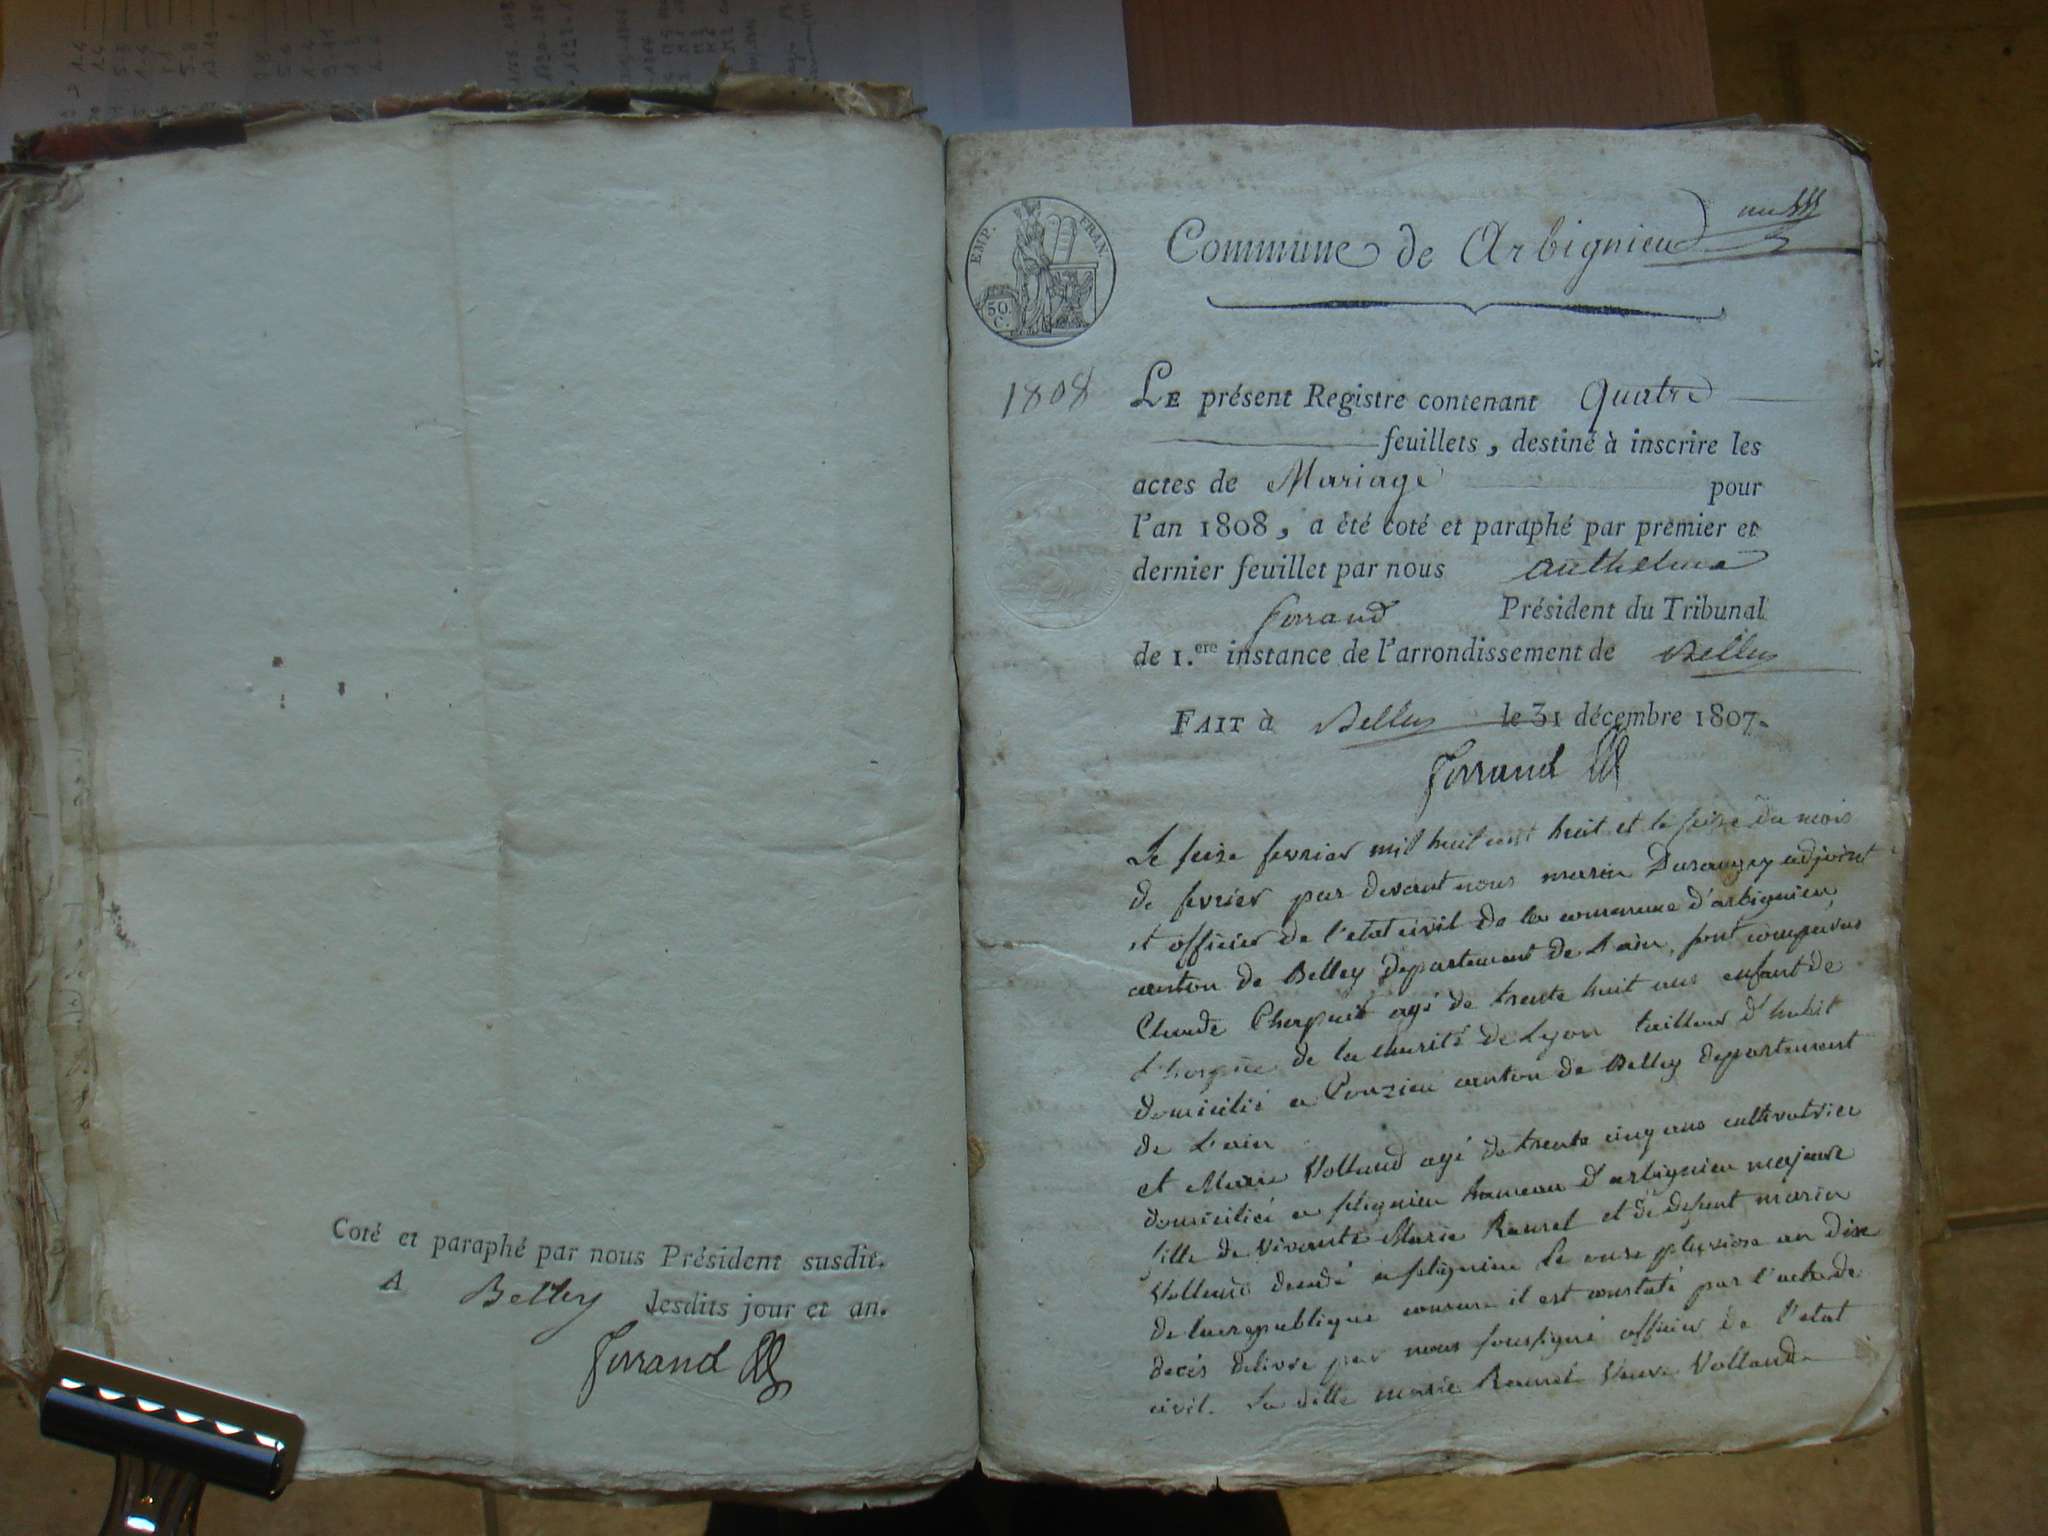 Coté et paraphé par nous Président susdit.
A Belley lesdits jour et an.
Ferrand
EMP. FRAN.
50.
C.
Commune de Arbignieu
1808
LE présent Registre contenant Quatre
feuillets, destiné à inscrire les
actes de Mariage pour
l'an 1808, a été coté et paraphé par premier et
dernier feuillet par nous anthelme
ferrand Président du Tribunal
de 1.ere instance de l'arrondissement de Belley
FAIT à Belley le 31 décembre 1807.
Ferrand
Le seize fevrier mil huit cent huit et le seize du mois
de fevrier par devant nous marin adjoint
et officier de l'etat civil de la commune d'arbignieu,
canton de Belley departement de L'ain, sont comparus
Claude agé de trente huit ans enfant de
de la charité de Lyon tailleur d'habit
domicilié a Conzieu canton de Belley departement
de L'ain
et Marie Volland agé de trente cinq ans cultivatrice
domiciliée a slignieu hameau d'arbignieu majeure
fille de vivante Marie et de defunt marin
Volland decedé a slignieu le onze pluviose an dixe
de la republique comme il est constaté par l'acte de
decés delivré par nous soussigné officier de l'etat
civil. La ditte marie Veuve Volland